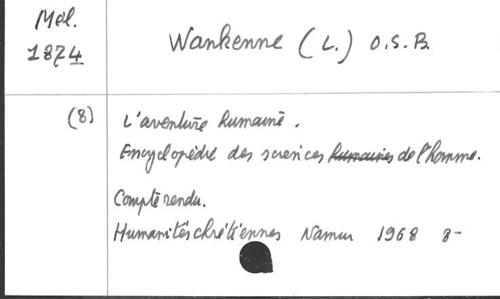 Mél.
1874
Wankenne (L.) O.S.B.
(8)
L'aventure humaine.
Encyclopédie des sciences humaines de l'homme.
Compte rendu.
Humanités chrétiennes Namur 1968 8-